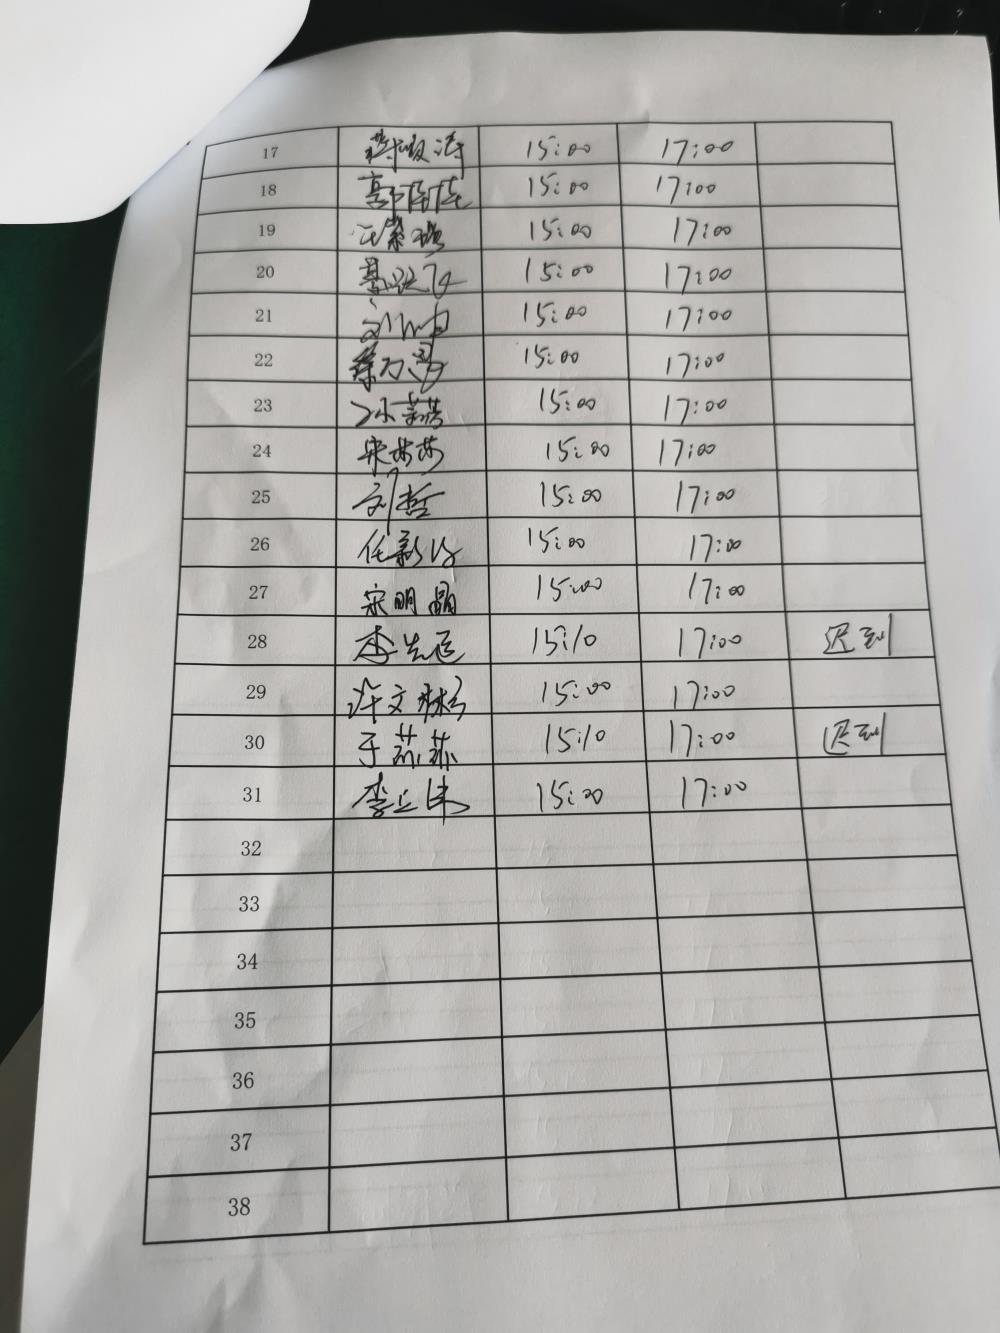 17 15:00 17:00
18 15:00 17:00
19 15:00 17:00
20 15:00 17:00
21 15:00 17:00
22 15:00 17:00
23 孙 15:00 17:00
24 宋莎莎 15:00 17:00
25 刘哲 15:00 17:00
26 任新 15:00 17:00
27 宋明晶 15:00 17:00
28 李 15:10 17:00 迟到
29 许文彬 15:00 17:00
30 于荪荪 15:10 17:00 迟到
31 李立伟 15:00 17:00
32
33
34
35
36
37
38